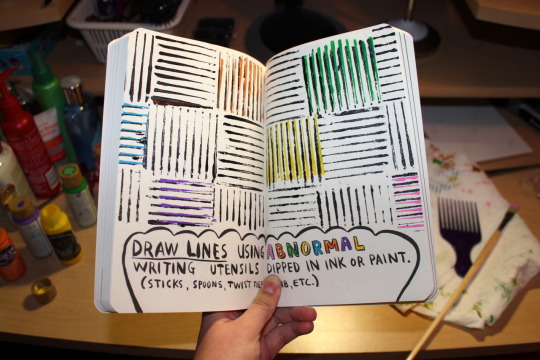 DRAW LINES USING ABNORMAL
WRITING UTENSILS DIPPED IN INK OR PAINT.
(STICKS, SPOONS, TWIST ETC.)